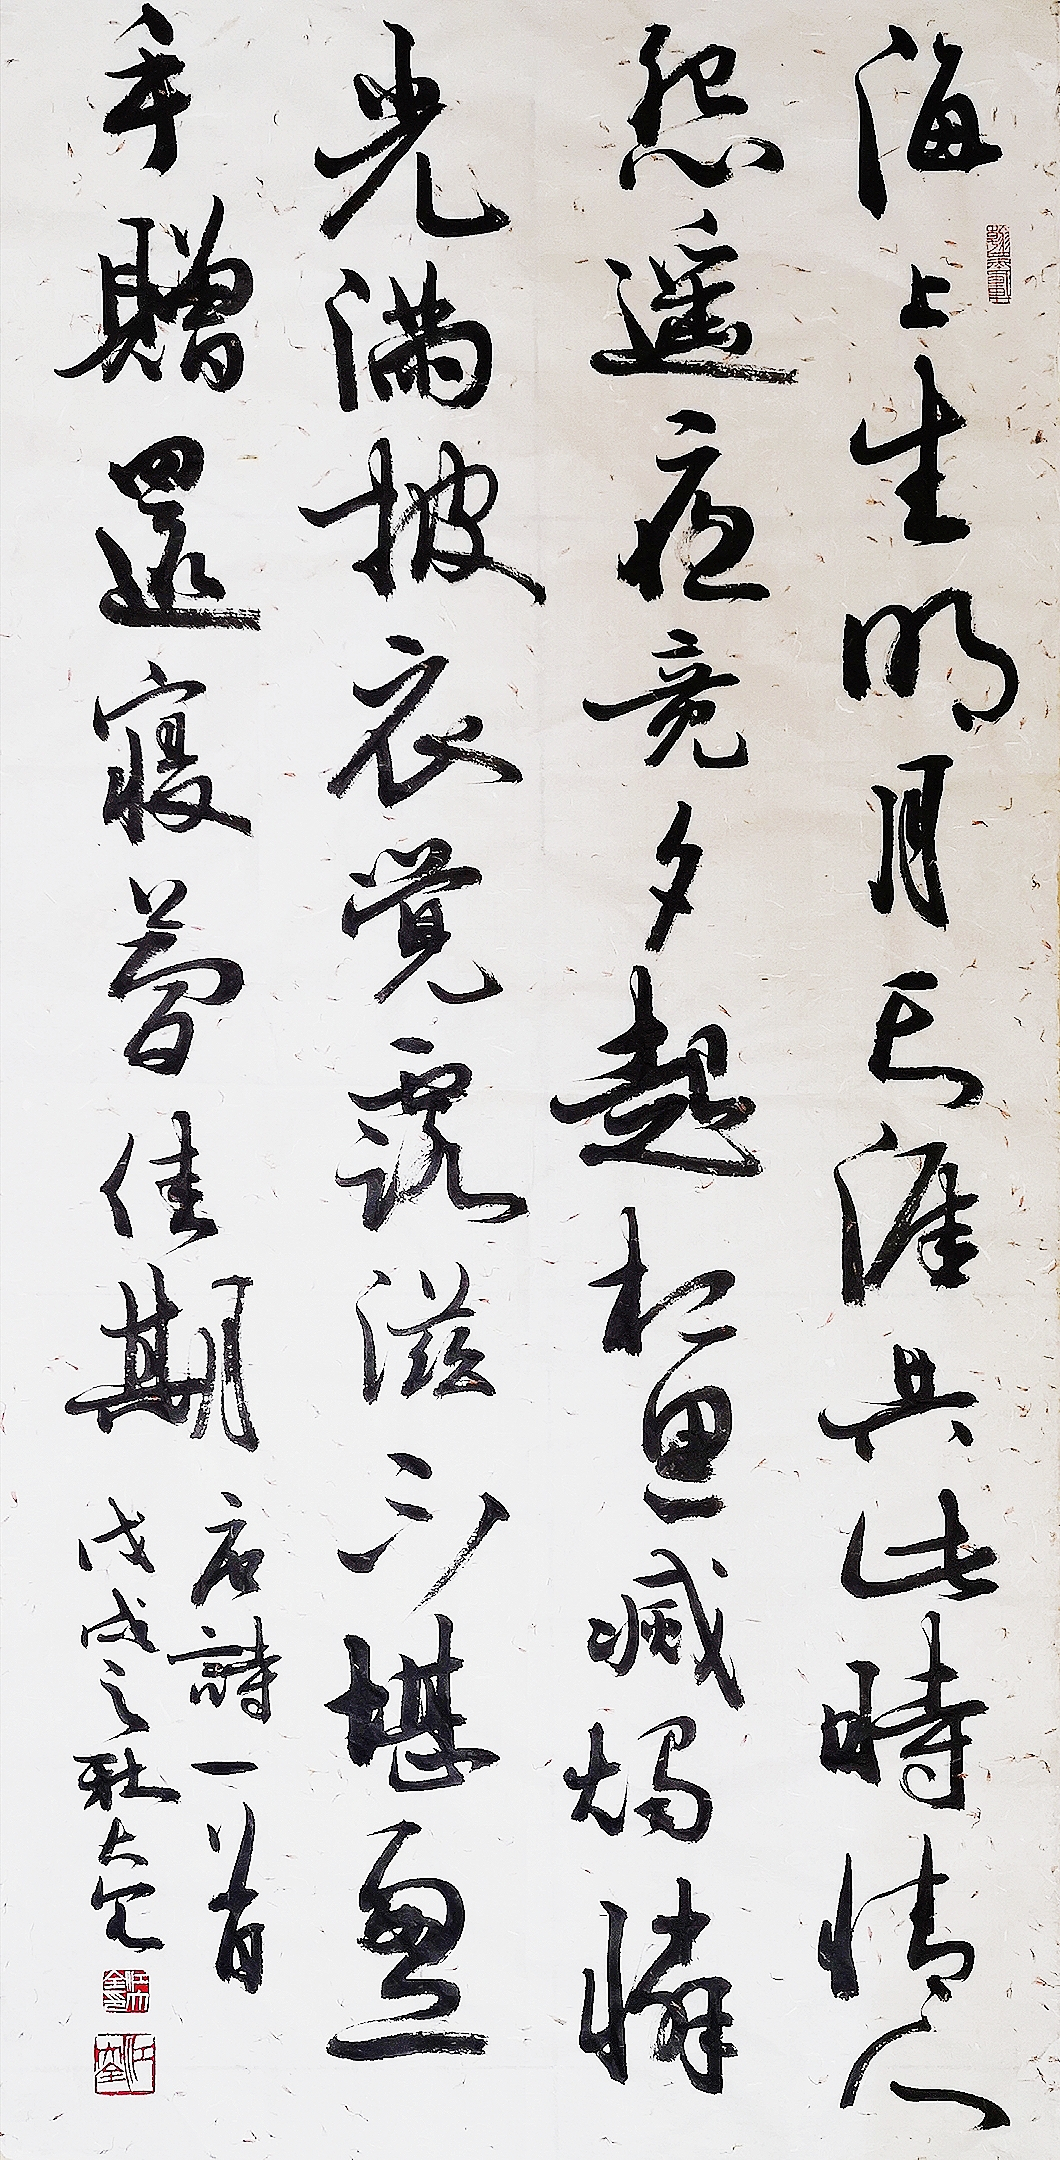 海上生明月天涯共此時情人
怨遙夜竟夕起相思滅燭憐
光滿披衣覺露滋不堪盈
手贈還寢夢佳期
唐詩一首
戊戌之秋大